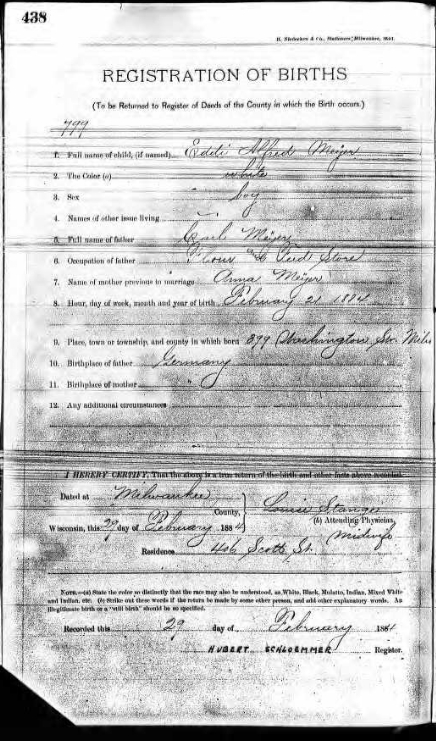 438
REGISTRATION OF BIRTHS
(To be Returned to Register of Deeds of the County in which the Birth occurs.)
799
1. Full name of child, (if named) Eddi Alfred Meyer
2. The Color (a) white
3. Sex boy
4. Names of other issue living
5. Full name of father Carl Meyer
6. Occupation of father Flour & Feed Store
7. Name of mother previous to marriage Anna Meyer
8. Hour, day of week, month and year of birth February 21 1884
9. Place, town or township, and county in which born 399 Washington Str. Milw
10. Birthplace of father Germany
11. Birthplace of mother "
12. Any additional circumstances
I HEREBY CERTIFY, That the above is a true return of the birth and other facts above recorded.
Dated at Milwaukee County,
Wisconsin, this 29 day of February 1884
Louise Stange
(b) Attending Physician
Midwife
Residence 406 Scott St.
NOTE.—(a) State the color so distinctly that the race may also be understood, as White, Black, Mulatto, Indian, Mixed White
and Indian, etc. (b) Strike out these words if the return be made by some other person, and add other explanatory words. An
illegitimate birth or a "still birth" should be so specified.
Recorded this 29 day of February 1884
HUBERT SCHLOEMMER Register.